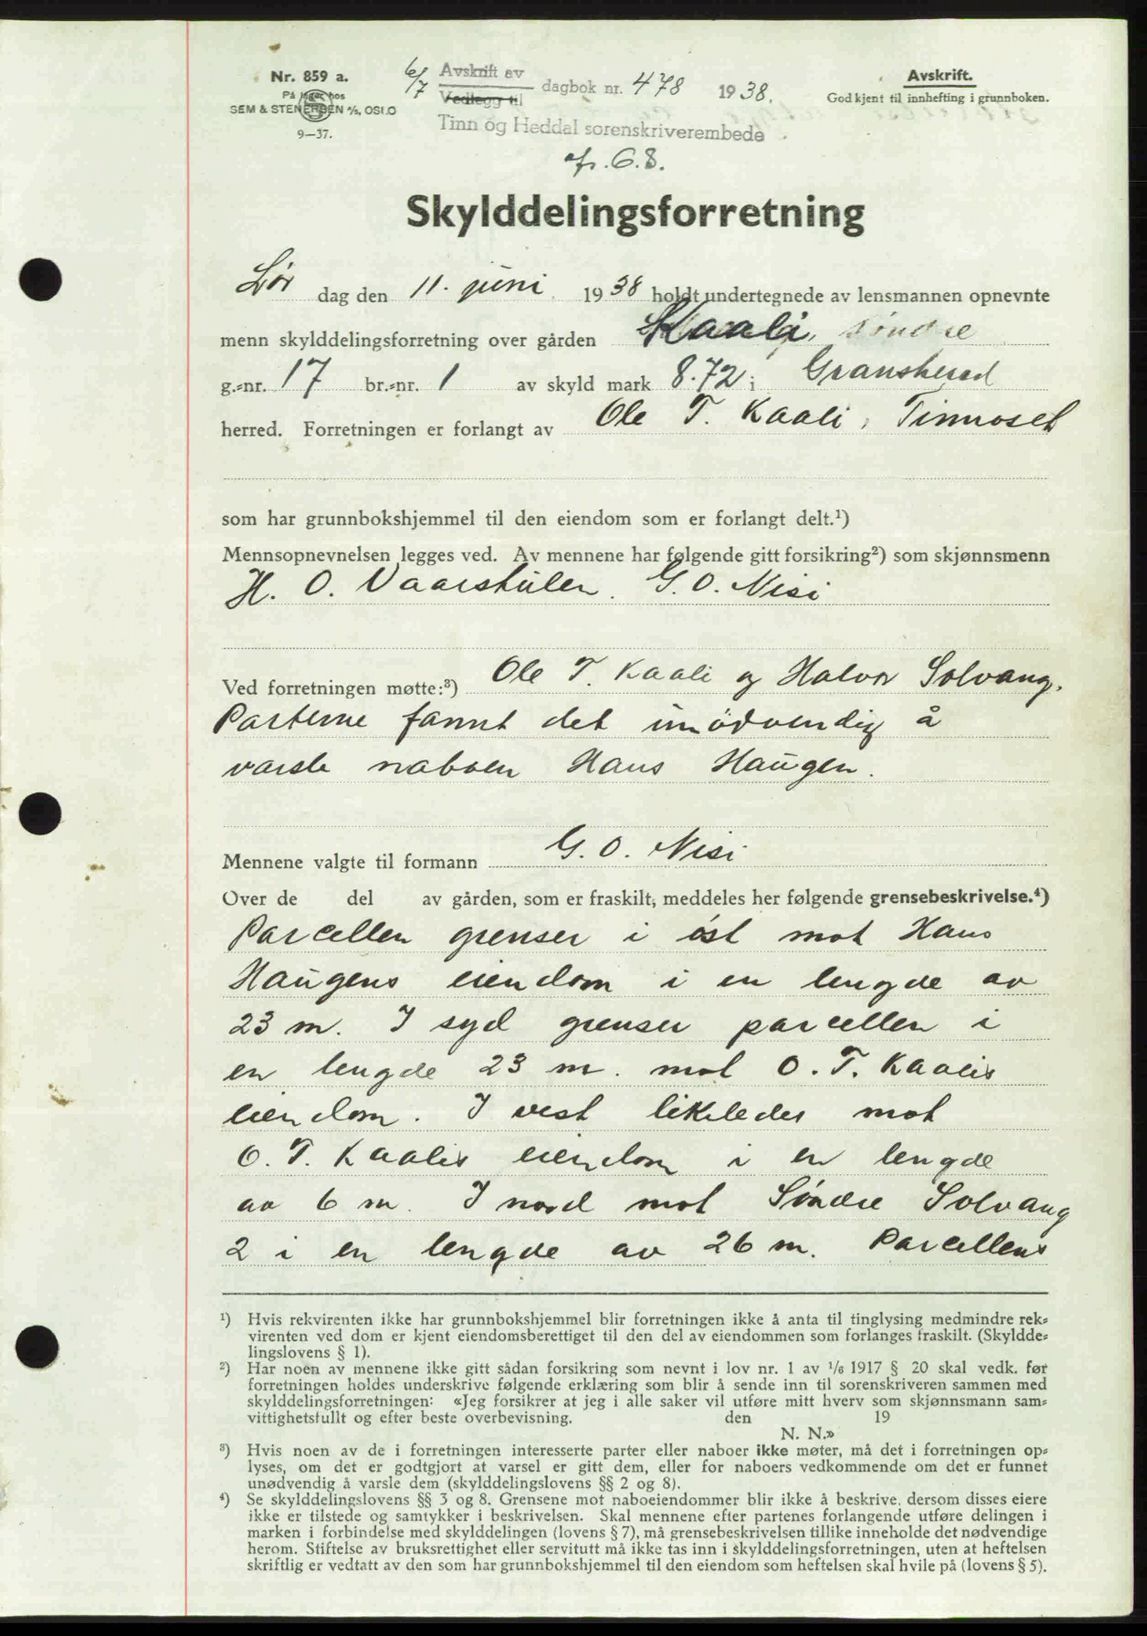 Nr. 859 a.
På lager hos
SEM & STENERSEN A/S, OSLO
9—37.
6/7 Avskrift av
Vedlegg til
dagbok nr. 478 1938.
Tinn og Heddal sorenskriverembede
Avskrift.
Godkjent til innhefting i grunnboken.
Skylddelingsforretning
Lør dag den 11. juni 1938 holdt undertegnede av lensmannen opnevnte
menn skylddelingsforretning over gården Kaali, søndre
g.-nr. 17 br.-nr. 1 av skyld mark 8.72 i Gransherad
herred. Forretningen er forlangt av Ole T. Kaali, Tinnoset
som har grunnbokshjemmel til den eiendom som er forlangt delt.¹)
Mennsopnevnelsen legges ved. Av mennene har følgende gitt forsikring²) som skjønnsmenn
H. O. Vaarskulen. G. O. Nisi
Ved forretningen møtte:³) Ole T. Kaali og Halvor Solvang.
Parterne fannt det unödvendig å
varsle naboen Hans Haugen.
Mennene valgte til formann G. O. Nisi
Over de del av gården, som er fraskilt, meddeles her følgende grensebeskrivelse.⁴)
Parcellen grenser i øst mot Hans
Haugens eiendom i en lengde av
23 m. I syd grenser parcellen i
en lengde 23 m. mot O. T. Kaalis
eiendom. I vest likeledes mot
O. T. Kaalis eiendom i en lengde
av 6 m. I nord mot Søndre Solvang
2 i en lengde av 26 m. Parcellens
¹) Hvis rekvirenten ikke har grunnbokshjemmel blir forretningen ikke å anta til tinglysing medmindre rek-
virenten ved dom er kjent eiendomsberettiget til den del av eiendommen som forlanges fraskilt. (Skyldde-
lingslovens § 1).
²) Har noen av mennene ikke gitt sådan forsikring som nevnt i lov nr. 1 av 1/6 1917 § 20 skal vedk. før
forretningen holdes underskrive følgende erklæring som blir å sende inn til sorenskriveren sammen med
skylddelingsforretningen: «Jeg forsikrer at jeg i alle saker vil utføre mitt hverv som skjønnsmann sam-
vittighetsfullt og efter beste overbevisning. den 19
N. N.»
³) Hvis noen av de i forretningen interesserte parter eller naboer ikke møter, må det i forretningen op-
lyses, om det er godtgjort at varsel er gitt dem, eller for naboers vedkommende om det er funnet
unødvendig å varsle dem (skylddelingslovens §§ 2 og 8).
⁴) Se skylddelingslovens §§ 3 og 8. Grensene mot naboeiendommer blir ikke å beskrive, dersom disses eiere
ikke er tilstede og samtykker i beskrivelsen. Skal mennene efter partenes forlangende utføre delingen i
marken i forbindelse med skylddelingen (lovens § 7), må grensebeskrivelsen tillike inneholde det nødvendige
herom. Stiftelse av bruksrettighet eller servitutt må ikke tas inn i skylddelingsforretningen, uten at heftelsen
skriftlig er vedtatt av den som har grunnbokshjemmel til den eiendom som heftelsen skal hvile på (lovens § 5).